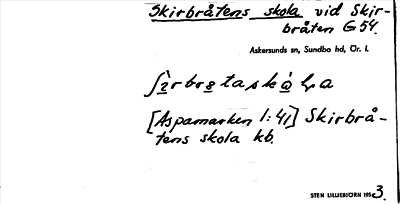 Skirbråtens skola vid Skir-
bråten G 54.
Askersunds sn, Sundbo hd, Ör. l.
[Aspamarken 1:41] Skirbrå-
tens skola kb.
STEN LILLIEBJÖRN 1953.